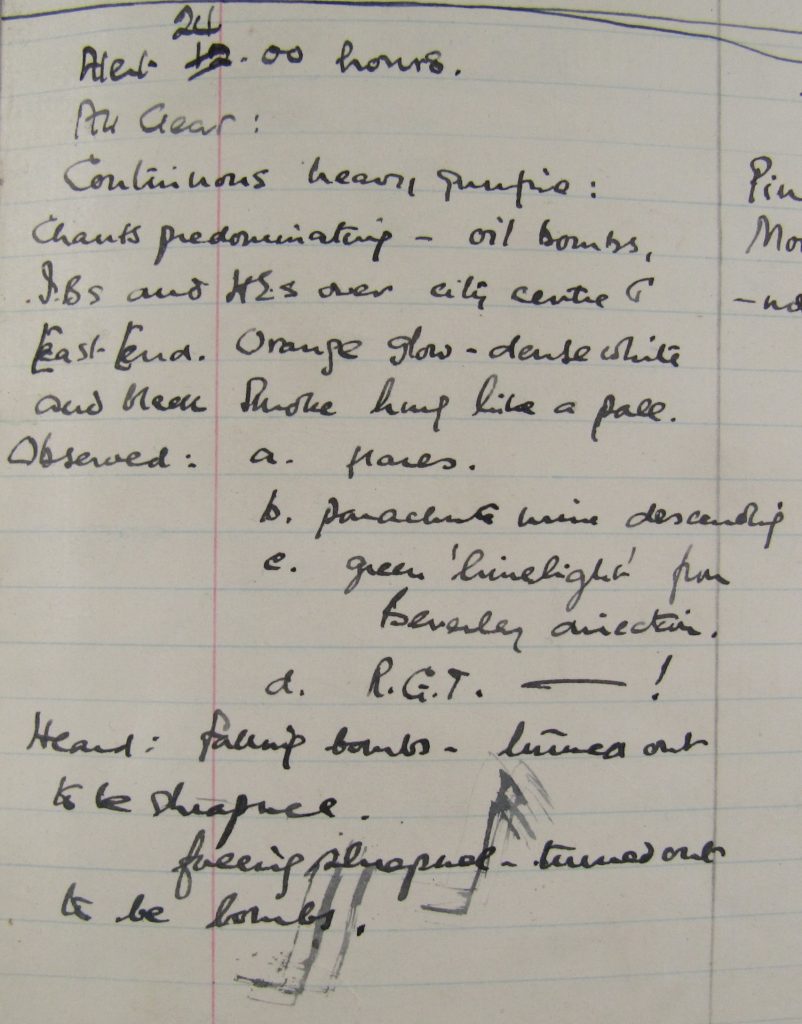 24
Alert 12.00 hours.
All Clear :
Continuous heavy gunfire : Pin
Chants predominating - oil bombs, Mon
I.Bs and HEs over city centre &
East End. Orange glow - dense white
and black smoke hung like a pall.
Observed : a. flares.
b. parachute mine descending
c. green 'limelight' from
Beverley direction.
d. R.G.T. — !
Heard : falling bombs - turned out
to be shrapnel.
falling shrapnel - turned out
to be bombs.